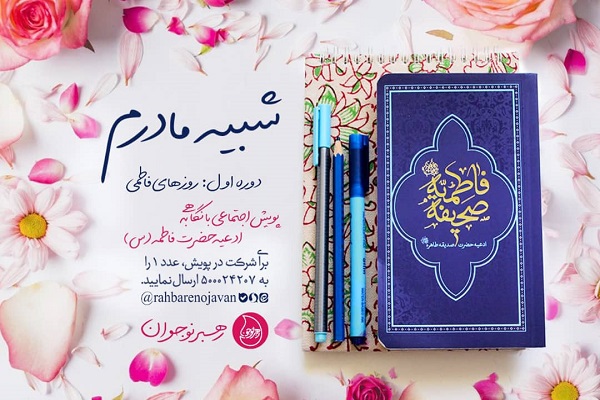 شبیه مادرم
دوره اول: روزهای فاطمی
پویش اجتماعی با نگاه به
ادعیه حضرت فاطمه (س)
برای شرکت در پویش، عدد ۱ را
به ۵۰۰۰۲۴۲۰۷ ارسال نمایید.
@rahbarenojavan
رهبر نوجوان
صحیفه
فاطمیّه
ادعیه حضرت صدیقه طاهره